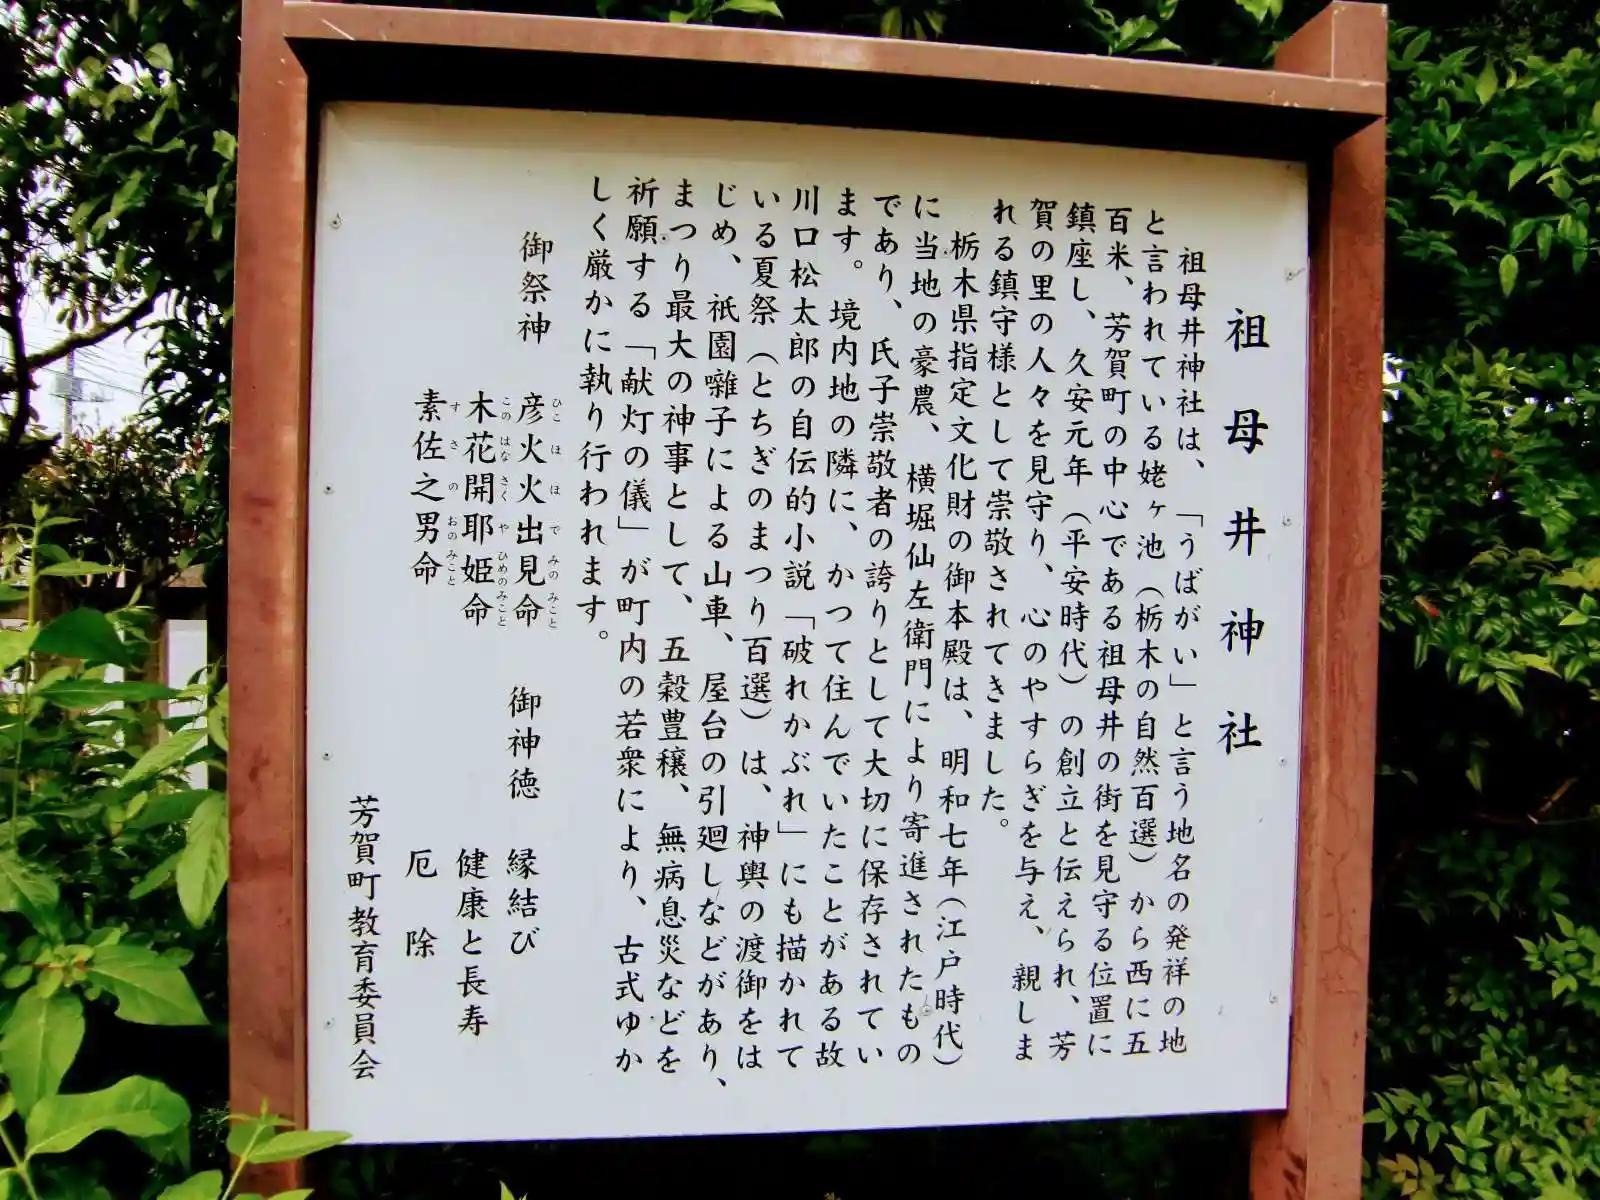 祖母井神社
祖母井神社は、「うばがい」と言う地名の発祥の地
と言われている姥ヶ池(栃木の自然百選)から西に五
百米、芳賀町の中心である祖母井の街を見守る位置に
鎮座し、久安元年(平安時代)の創立と伝えられ、芳
賀の里の人々を見守り、心のやすらぎを与え、親しま
れる鎮守様として崇敬されてきました。
栃木県指定文化財の御本殿は、明和七年(江戸時代)
に当地の豪農、横堀仙左衛門により寄進されたもの
であり、氏子崇敬者の誇りとして大切に保存されてい
ます。境内地の隣に、かつて住んでいたことがある故
川口松太郎の自伝的小説「破れかぶれ」にも描かれて
いる夏祭(とちぎのまつり百選)は、神輿の渡御をは
じめ、祇園囃子による山車、屋台の引廻しなどがあり、
まつり最大の神事として、五穀豊穣、無病息災などを
祈願する「献灯の儀」が町内の若衆により、古式ゆか
しく厳かに執り行われます。
御祭神 彦火火出見命 御神徳 縁結び
ひこほほでみのみこと
木花開耶姫命 健康と長寿
このはなさくやひめのみこと
素佐之男命 厄除
すさのおのみこと
芳賀町教育委員会